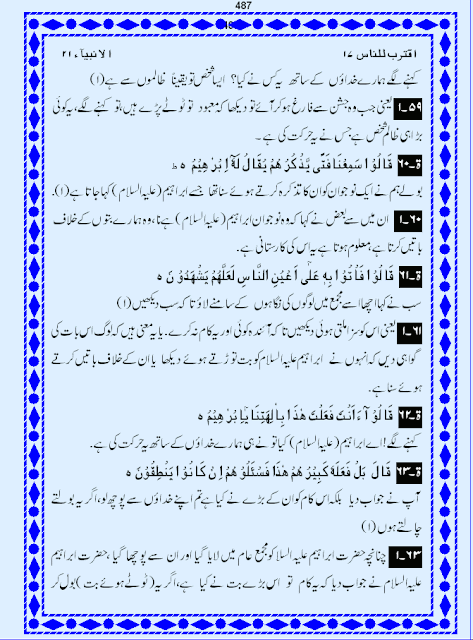 487
اقترب للناس ۱۷ الانبیآء ۲۱
کہنے لگے ہمارے خداؤں کے ساتھ یہ کس نے کیا؟ ایسا شخص تو یقیناً ظالموں سے ہے (۱)
۵۹۔۱ یعنی جب وہ جشن سے فارغ ہو کر آئے تو دیکھا کہ معبود تو ٹوٹے پڑے ہیں، تو کہنے لگے، یہ کوئی
بڑا ہی ظالم شخص ہے جس نے یہ حرکت کی ہے۔
ق۔۶۰ قَالُوْا سَمِعْنَا فَتًى یَّذْكُرُ هُمْ یُقَالُ لَهٗۤ اِبْرٰهِیْمُ ه ط
بولے ہم نے ایک نوجوان کو ان کا تذکرہ کرتے ہوئے سنا تھا جسے ابراہیم (علیہ السلام) کہا جاتا ہے (۱)۔
۶۰۔۱ ان میں سے بعض نے کہا کہ وہ نوجوان ابراہیم (علیہ السلام) ہے نا، وہ ہمارے بتوں کے خلاف
باتیں کرتا ہے، معلوم ہوتا ہے یہ اس کی کارستانی ہے۔
ق۔۶۱ قَالُوْا فَاْتُوْا بِهٖ عَلٰۤى اَعْیُنِ النَّاسِ لَعَلَّهُمْ یَشْهَدُوْنَ ه
سب نے کہا اچھا اسے مجمع میں لوگوں کی نگاہوں کے سامنے لاؤ تاکہ سب دیکھیں (۱)
۶۱۔۱ یعنی اس کو سزا ملتی ہوئی دیکھیں تاکہ آئندہ کوئی اور یہ کام نہ کرے۔ یا یہ معنی ہیں کہ لوگ اس بات کی
گواہی دیں کہ انہوں نے ابراہیم علیہ السلام کو بت توڑتے ہوئے دیکھا یا ان کے خلاف باتیں کرتے
ہوئے سنا ہے۔
ق۔۶۲ قَالُوْۤا ءَاَنْتَ فَعَلْتَ هٰذَا بِاٰلِهَتِنَا یٰۤاِبْرٰهِیْمُ ه
کہنے لگے! اے ابراہیم (علیہ السلام) کیا تو نے ہی ہمارے خداؤں کے ساتھ یہ حرکت کی ہے۔
ق۔۶۳ قَالَ بَلْ فَعَلَهٗ كَبِیْرُ هُمْ هٰذَا فَسْئَلُوْ هُمْ اِنْ كَانُوْا یَنْطِقُوْنَ ه
آپ نے جواب دیا بلکہ اس کام کو ان کے بڑے نے کیا ہے تم اپنے خداؤں سے پوچھ لو، اگر یہ بولتے
چالتے ہوں (۱)
۶۳۔۱ چنانچہ حضرت ابراہیم علیہ السلا کو مجمع عام میں لایا گیا اور ان سے پوچھا گیا، حضرت ابراہیم
علیہ السلام نے جواب دیا کہ یہ کام تو اس بڑے بت نے کیا ہے، اگر یہ (ٹوٹے ہوئے بت) بول کر